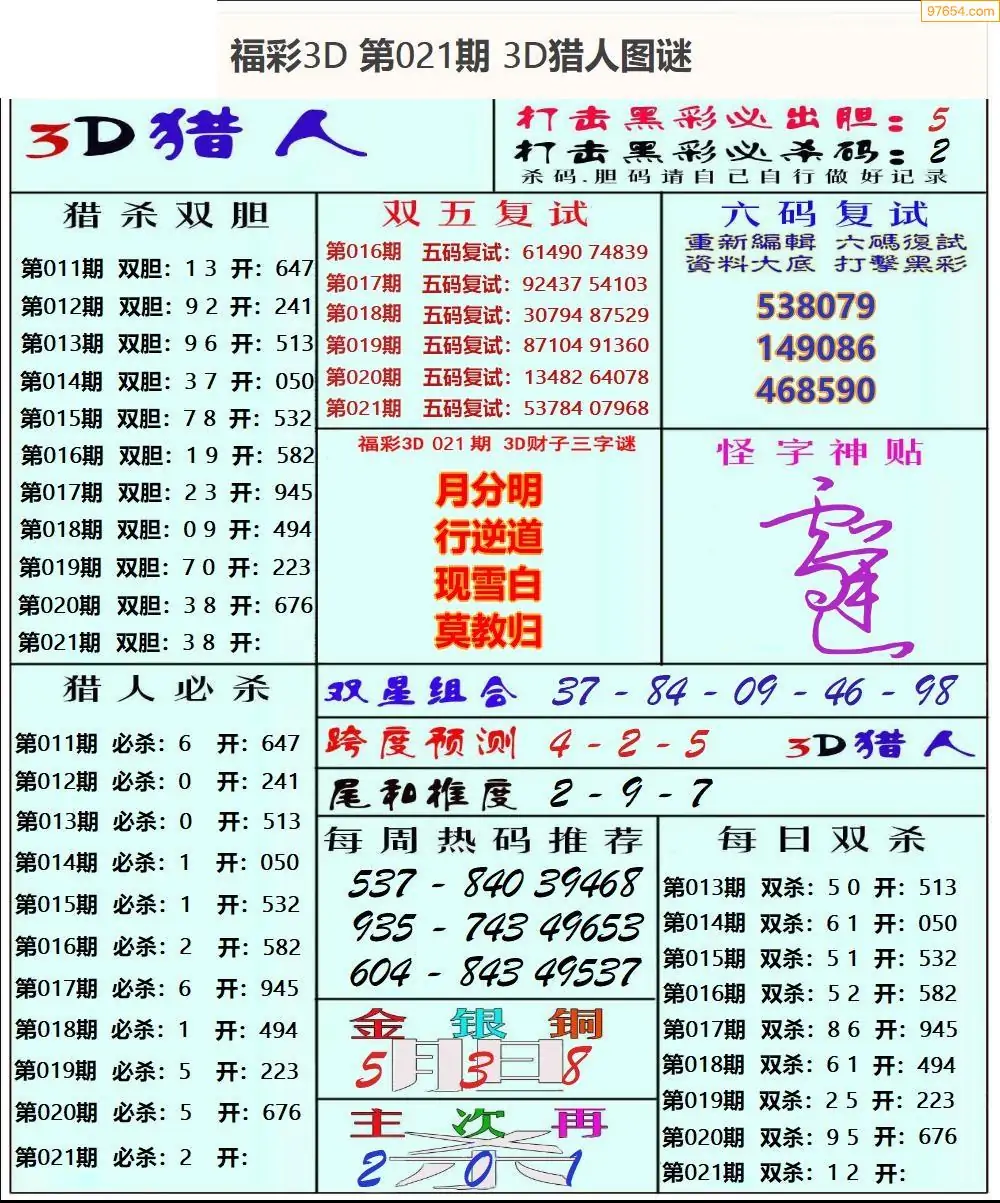 97654.com
福彩3D 第021期 3D猎人图谜
3D猎人
打击黑彩必出胆：5
打击黑彩必杀码：2
杀码.胆码请自己自行做好记录
猎杀双胆
第011期 双胆：1 3 开：647
第012期 双胆：9 2 开：241
第013期 双胆：9 6 开：513
第014期 双胆：3 7 开：050
第015期 双胆：7 8 开：532
第016期 双胆：1 9 开：582
第017期 双胆：2 3 开：945
第018期 双胆：0 9 开：494
第019期 双胆：7 0 开：223
第020期 双胆：3 8 开：676
第021期 双胆：3 8 开：
双五复试
第016期 五码复试：61490 74839
第017期 五码复试：92437 54103
第018期 五码复试：30794 87529
第019期 五码复试：87104 91360
第020期 五码复试：13482 64078
第021期 五码复试：53784 07968
六码复试
重新編輯 六碼復試
資料大底 打擊黑彩
538079
149086
468590
福彩3D 021期 3D财子三字谜
月分明
行逆道
现雪白
莫教归
怪字神贴
猎人必杀
第011期 必杀：6 开：647
第012期 必杀：0 开：241
第013期 必杀：0 开：513
第014期 必杀：1 开：050
第015期 必杀：1 开：532
第016期 必杀：2 开：582
第017期 必杀：6 开：945
第018期 必杀：1 开：494
第019期 必杀：5 开：223
第020期 必杀：5 开：676
第021期 必杀：2 开：
双星组合 37 - 84 - 09 - 46 - 98
跨度预测 4 - 2 - 5 3D猎人
尾和推度 2 - 9 - 7
每周热码推荐
537 - 840 39468
935 - 743 49653
604 - 843 49537
金银铜
胆
5 3 8
主次再
杀
2 0 1
每日双杀
第013期 双杀：5 0 开：513
第014期 双杀：6 1 开：050
第015期 双杀：5 1 开：532
第016期 双杀：5 2 开：582
第017期 双杀：8 6 开：945
第018期 双杀：6 1 开：494
第019期 双杀：2 5 开：223
第020期 双杀：9 5 开：676
第021期 双杀：1 2 开：